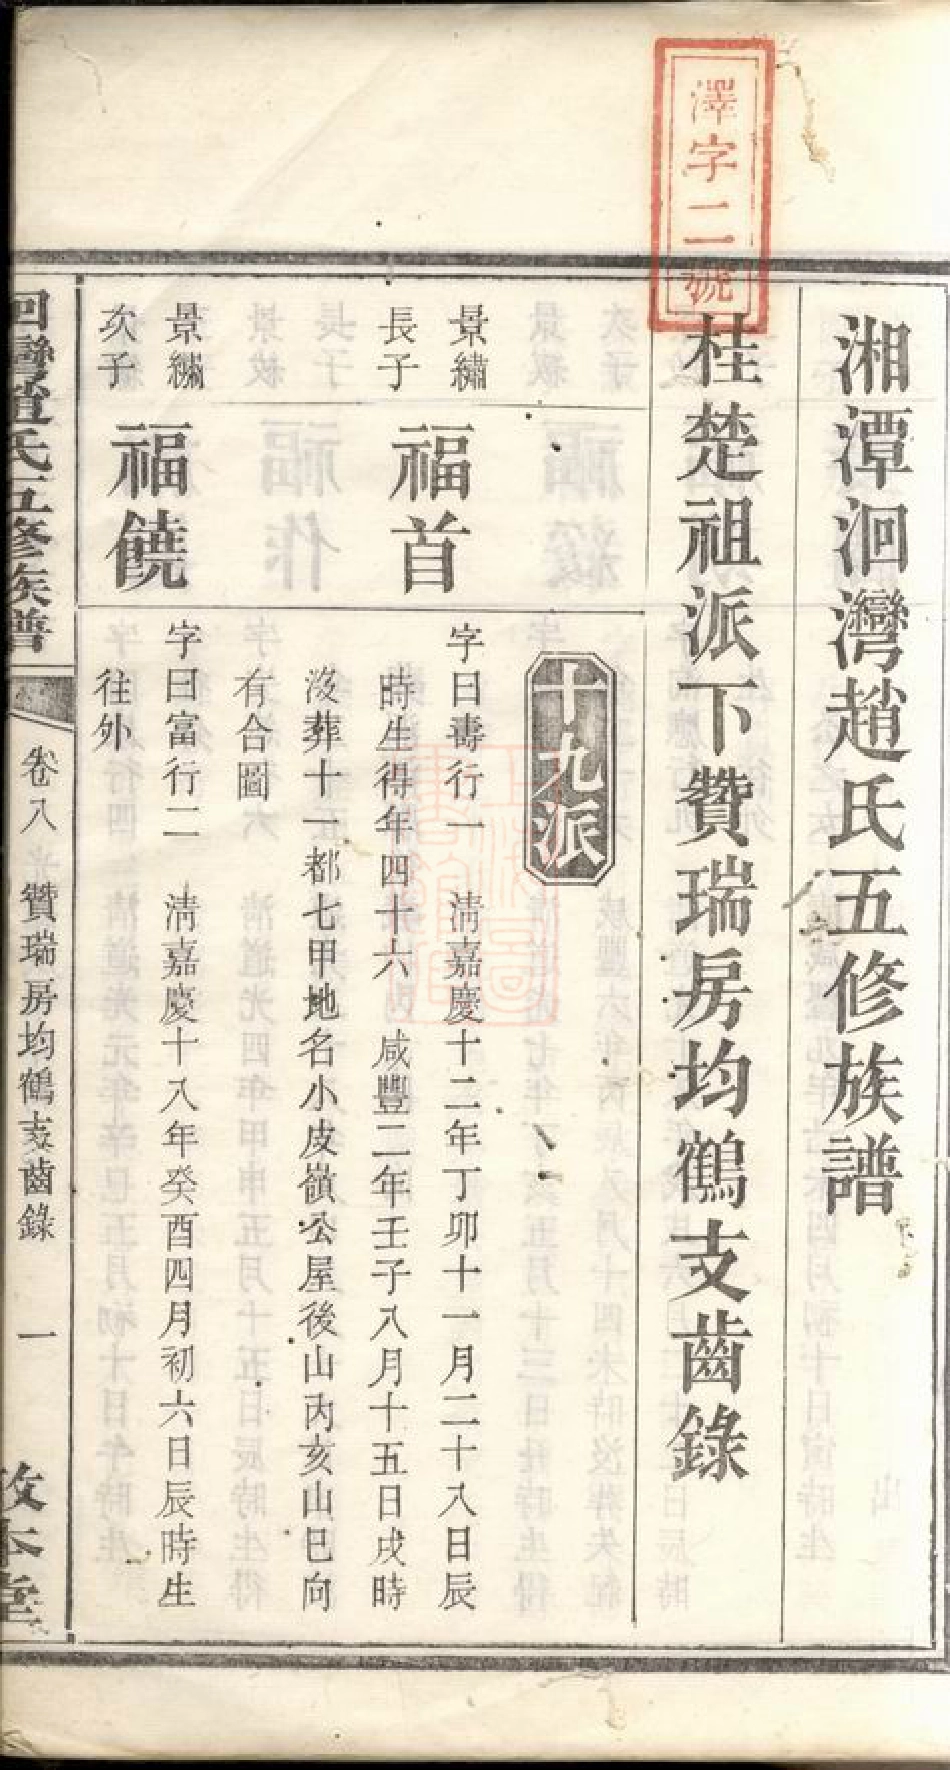 澤字二號
湘潭洄灣趙氏五修族譜
桂楚祖派下贊瑞房均鶴支齒錄
十九派
景繡
長子
福首
字曰壽行一　淸嘉慶十二年丁卯十一月二十八日辰
時生得年四十六　咸豐二年壬子八月十五日戌時
沒葬十一都七甲地名小皮嶺公屋後山丙亥山巳向
有合圖
景繡
次子
福饒
字曰富行二　淸嘉慶十八年癸酉四月初六日辰時生
往外
洄灣趙氏五修族譜
卷八　贊瑞房均鶴支齒錄　一
敦本堂